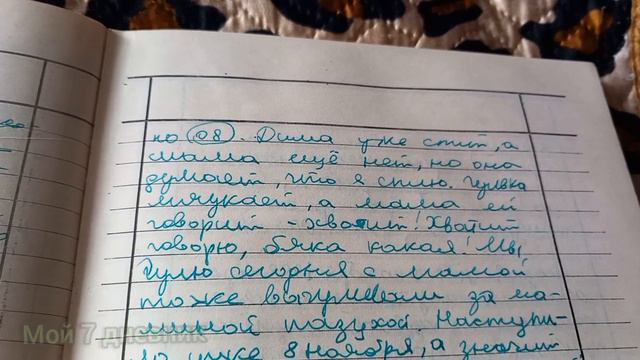 но 08. Дима уже спит, а
мама ещё нет, но она
думает, что я сплю. Гулька
мяукает, а мама ей
говорит - хватит! Хватит
говорю, бяка какая! Мы
Гулю сегодня с мамой
тоже выгуливали за ма-
миной пазухой. Наступи-
ло уже 8 ноября, а значит
Мой 7 дневник